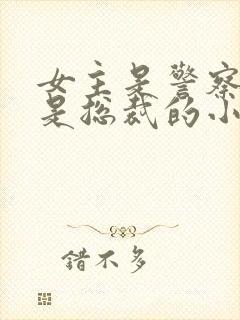 女主是警察
是总裁的小
错不多